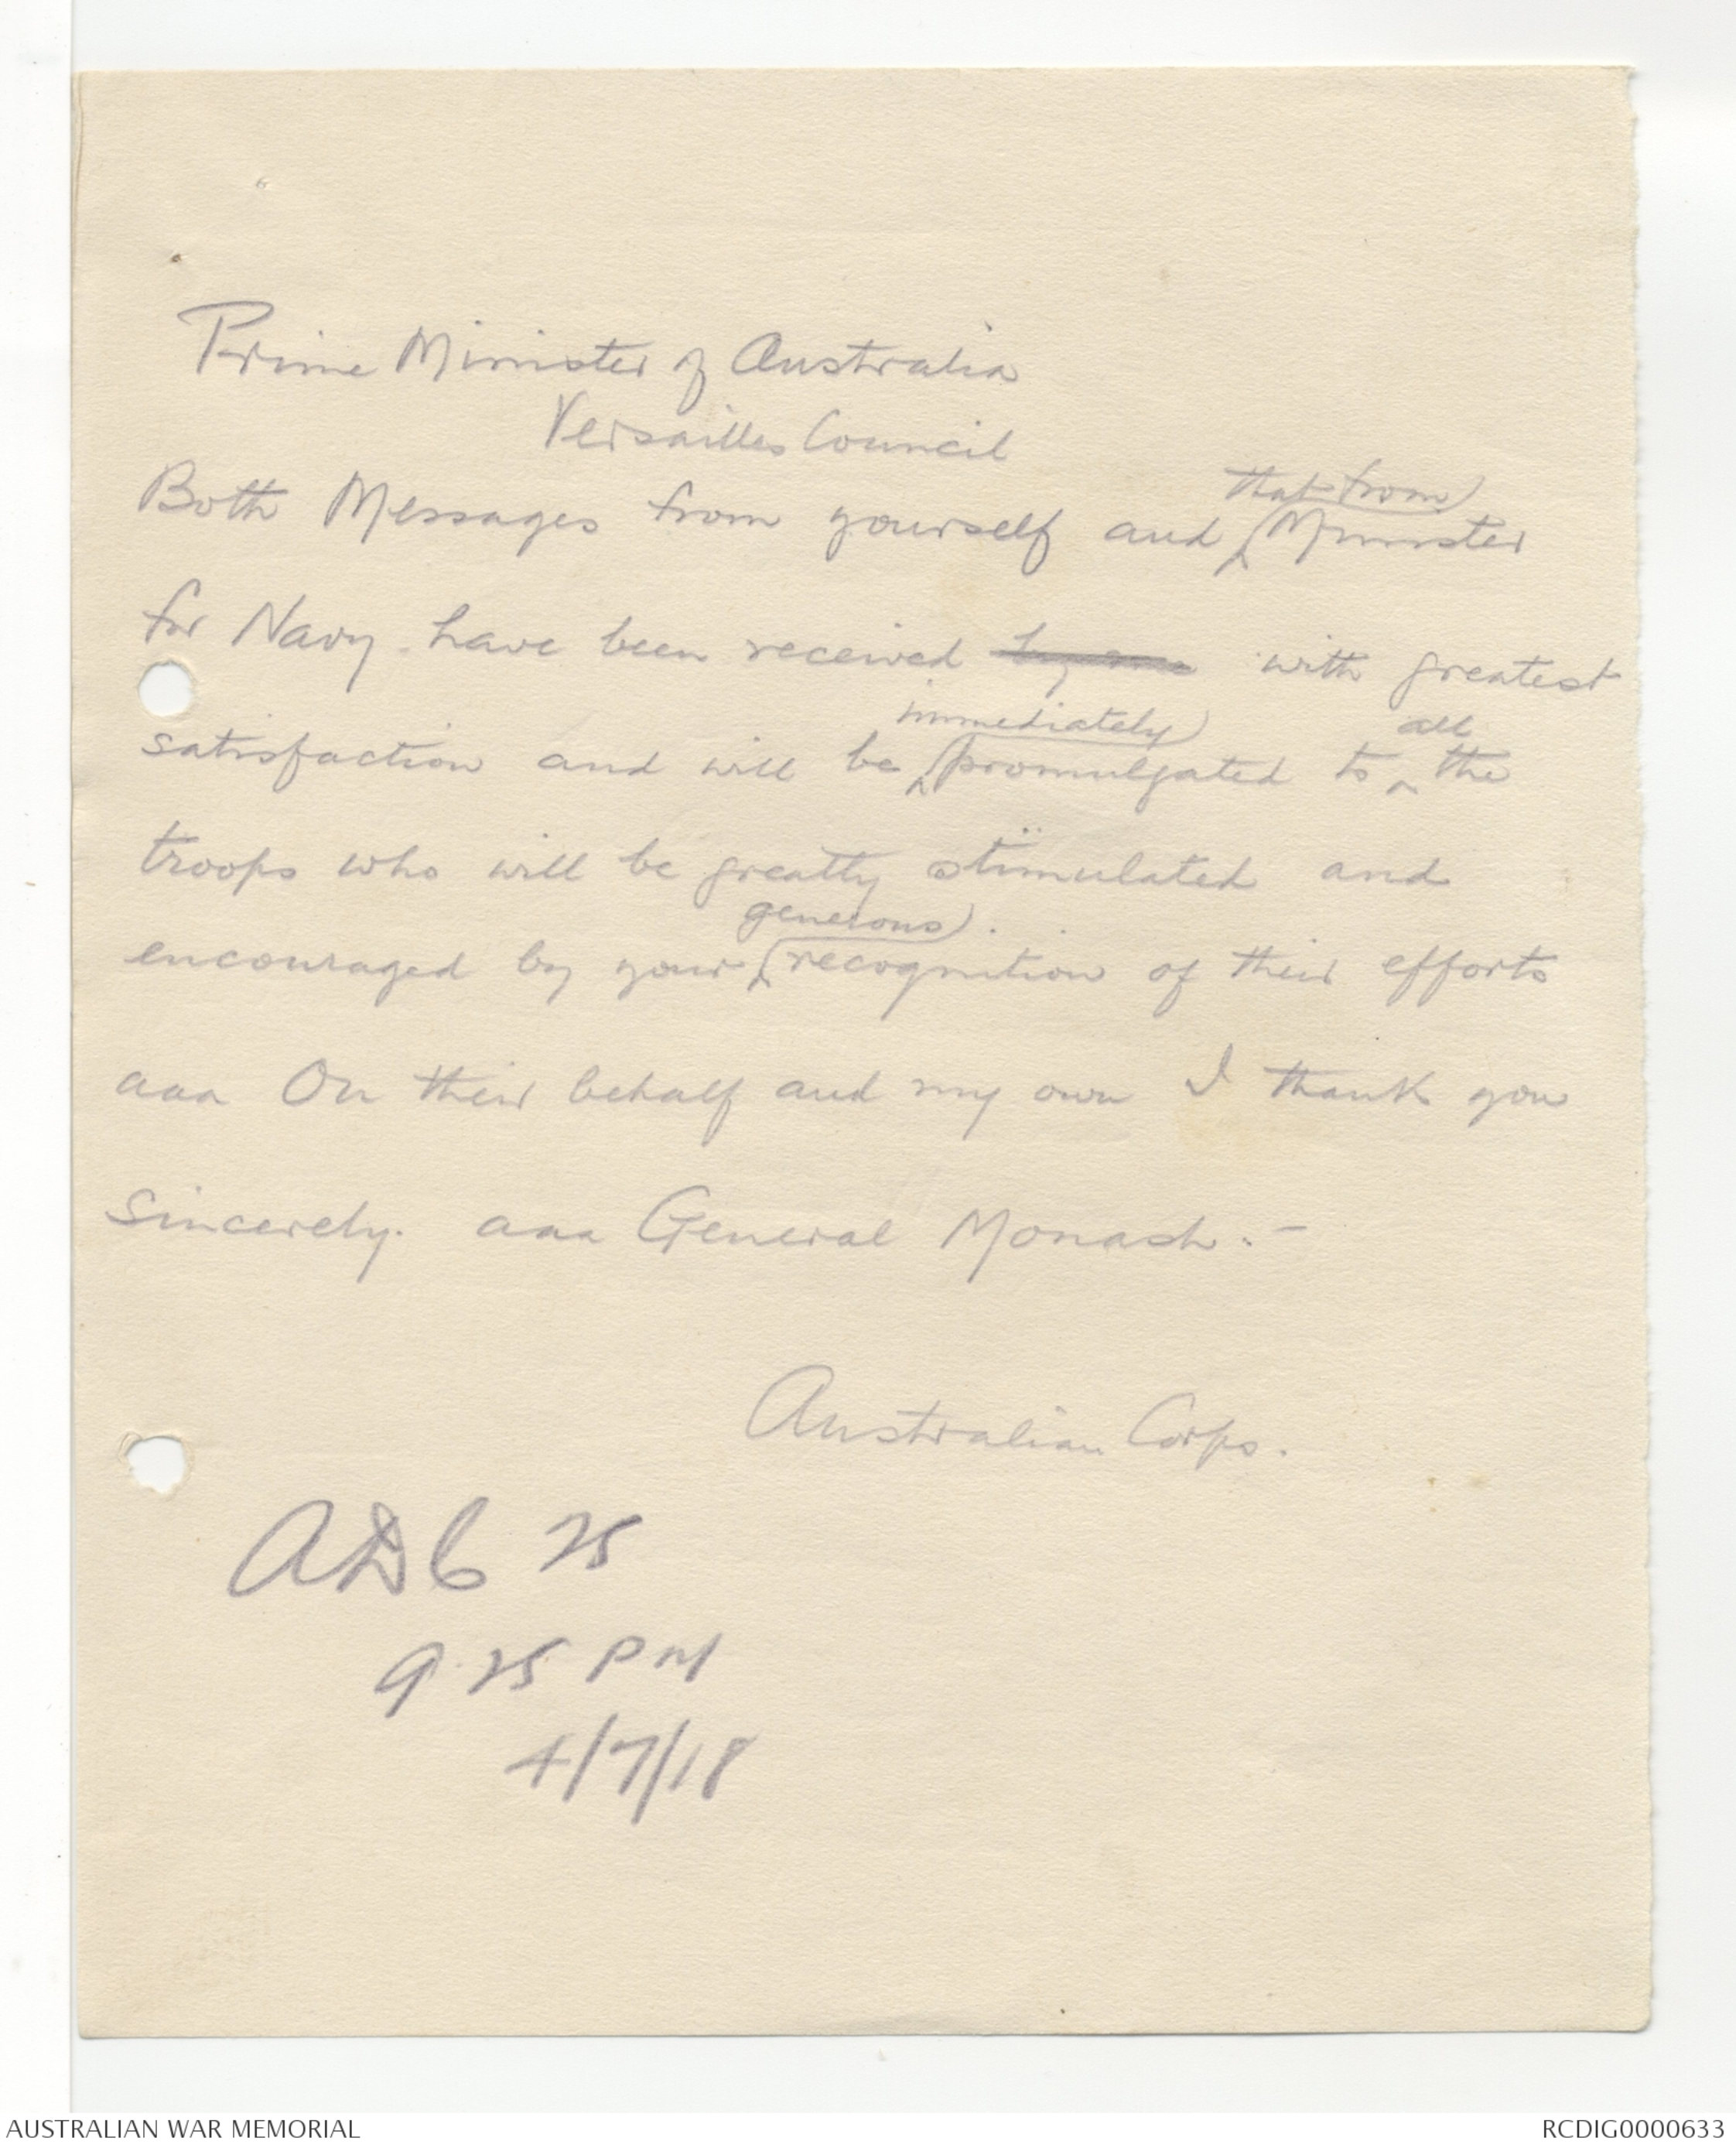 Prime Minister of Australia
Versailles Council
Both Messages from yourself and that from Minister
for Navy have been received by me with greatest
satisfaction and will be immediately promulgated to all the
troops who will be greatly stimulated and
encouraged by your generous recognition of their efforts
aaa On their behalf and my own I thank you
sincerely. aaa General Monash.-
Australian Corps.
ADC 25
9.25 PM
4/7/18
AUSTRALIAN WAR MEMORIAL
RCDIG0000633